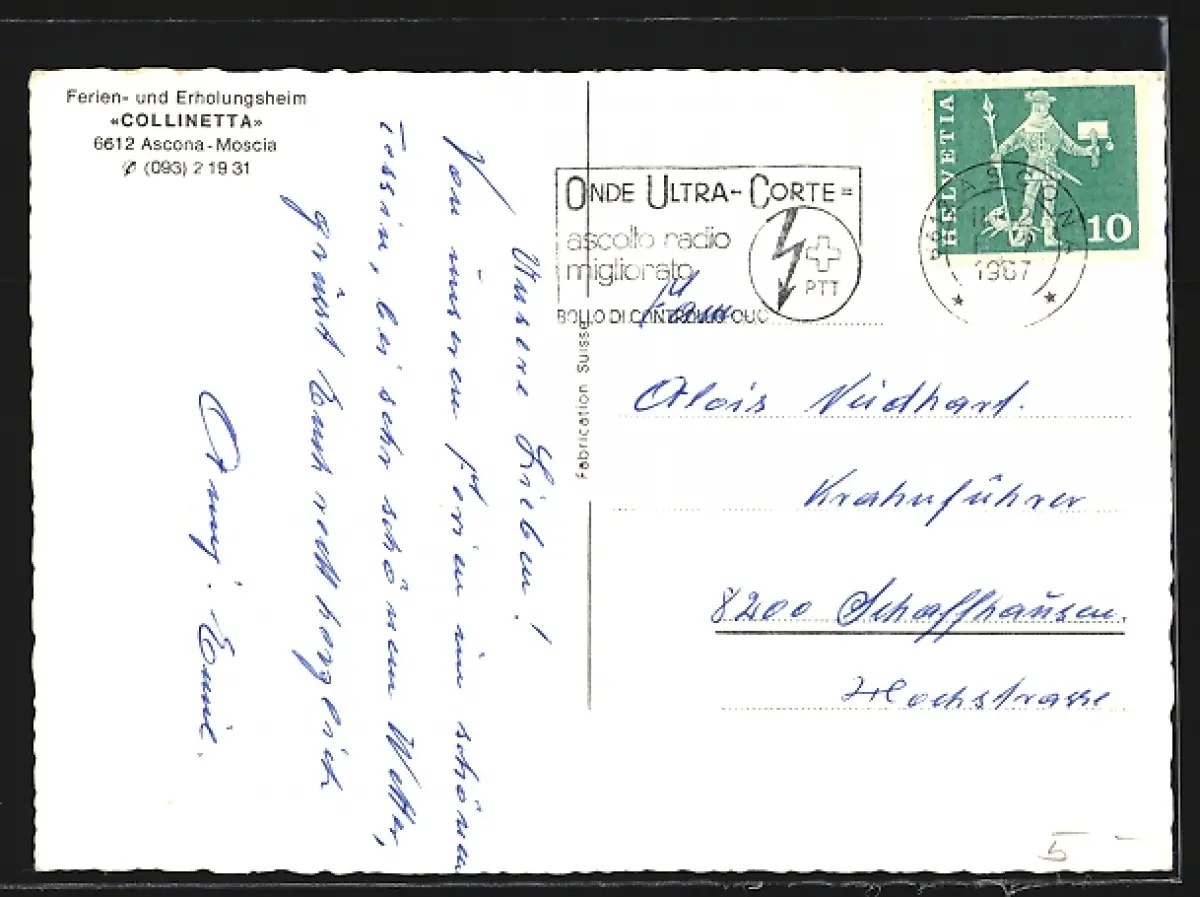 Ferien- und Erholungsheim
«COLLINETTA»
6612 Ascona-Moscia
✆ (093) 2 19 31
Unsere Lieben!
Von unseren Ferien im schönen
Tessin, bei sehr schönem Wetter,
grüsst Euch recht herzlich
Anny. Emil.
Fabrication Suisse
ONDE ULTRA-CORTE =
ascolto radio
migliorato
PTT
BOLLO DI CONTROLLO
ASCONA
1967
HELVETIA
10
Alois Neidhart.
Krahnführer
8200 Schaffhausen.
Hochstrasse
5 –